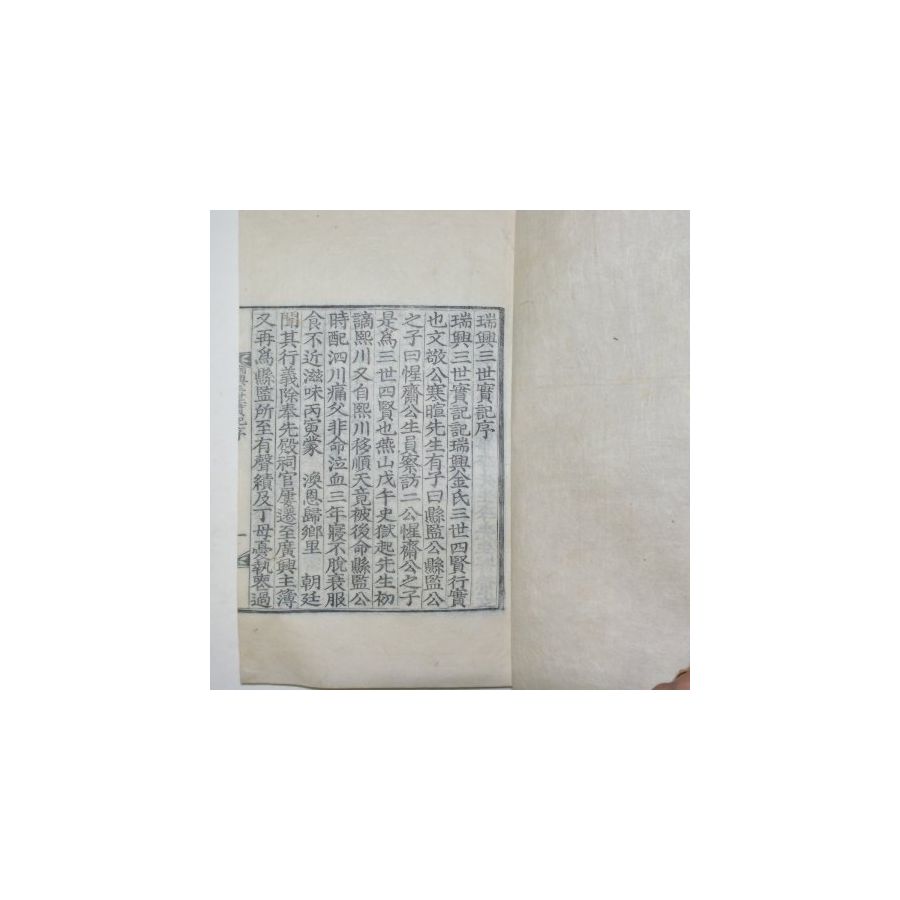 瑞興三世實記序
瑞興三世實記記瑞興金氏三世四賢行實
也文敬公寒暄先生有子曰縣監公縣監公
之子曰惺齋公生員察訪二公惺齋公之子
是爲三世四賢也燕山戊午史獄起先生初
謫熙川又自熙川移順天竟被後命縣監公
時配泗川痛父非命泣血三年寢不脫衰服
食不近滋味丙寅蒙 渙恩歸鄉里 朝廷
聞其行義除奉先殿祠官屢遷至廣興主簿
又再爲縣監所至有聲績及丁母憂執喪過
瑞興三世實記序
一